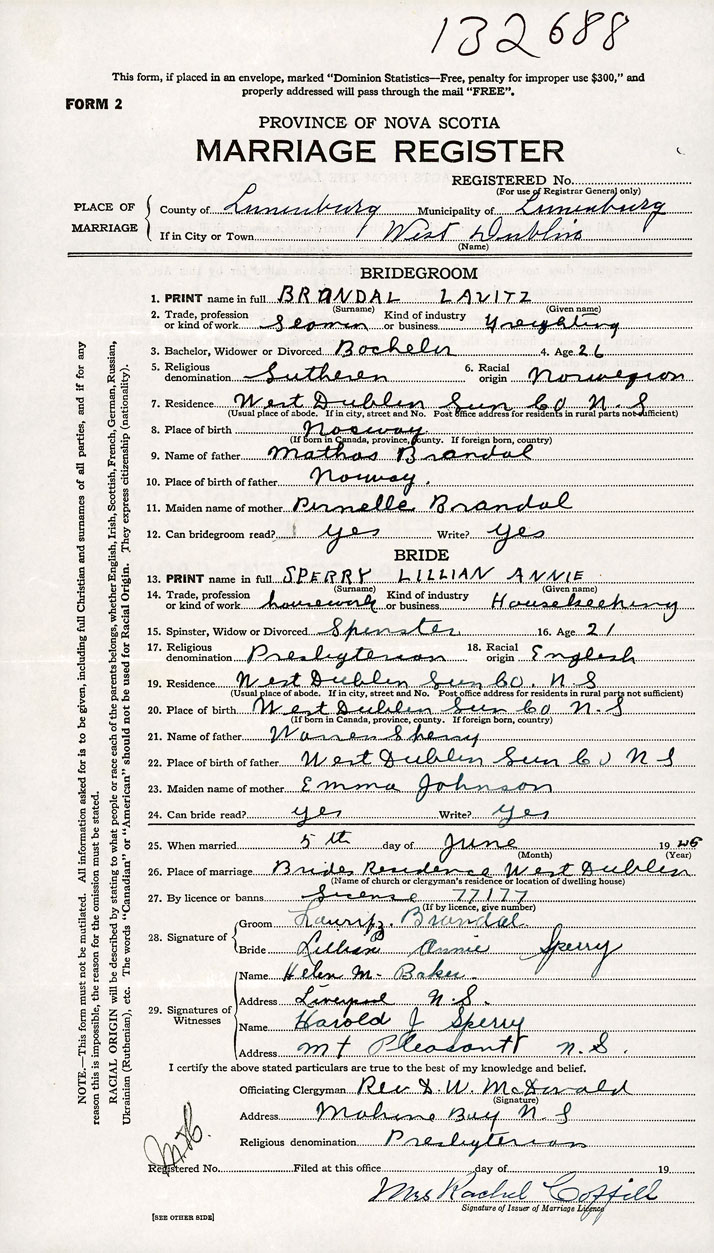 132688
This form, if placed in an envelope, marked "Dominion Statistics—Free, penalty for improper use $300," and
properly addressed will pass through the mail "FREE".
FORM 2
PROVINCE OF NOVA SCOTIA
MARRIAGE REGISTER
REGISTERED No.
(For use of Registrar General only)
PLACE OF MARRIAGE
County of Lunenburg Municipality of Lunenburg
If in City or Town West Dublin
(Name)
BRIDEGROOM
1. PRINT name in full BRANDAL LAVITZ
(Surname) (Given name)
2. Trade, profession or kind of work Seaman Kind of industry or business Freighting
3. Bachelor, Widower or Divorced Bachelor 4. Age 26
5. Religious denomination Lutheren 6. Racial origin Norwegian
7. Residence West Dublin Lun Co N.S
(Usual place of abode. If in city, street and No. Post office address for residents in rural parts not sufficient)
8. Place of birth Norway
(If born in Canada, province, county. If foreign born, country)
9. Name of father Mathas Brandal
10. Place of birth of father Norway.
11. Maiden name of mother Pernelle Brandal
12. Can bridegroom read? yes Write? yes
BRIDE
13. PRINT name in full SPERRY LILLIAN ANNIE
(Surname) (Given name)
14. Trade, profession or kind of work housework Kind of industry or business Housekeeping
15. Spinster, Widow or Divorced Spinster 16. Age 21
17. Religious denomination Presbyterian 18. Racial origin English
19. Residence West Dublin Lun Co. N.S
(Usual place of abode. If in city, street and No. Post office address for residents in rural parts not sufficient)
20. Place of birth West Dublin Lun Co N.S
(If born in Canada, province, county. If foreign born, country)
21. Name of father Warren Sperry
22. Place of birth of father West Dublin Lun Co N S
23. Maiden name of mother Emma Johnson
24. Can bride read? yes Write? yes
25. When married 5th day of June 1946
(Month) (Year)
26. Place of marriage Brides Residence West Dublin
(Name of church or clergyman's residence or location of dwelling house)
27. By licence or banns License 77177
(If by licence, give number)
28. Signature of
Groom Brandal
Bride Lillian Annie Sperry
29. Signatures of Witnesses
Name Helen M. Baker
Address Liverpool N.S.
Name Harold J Sperry
Address Mt Pleasant N.S.
I certify the above stated particulars are true to the best of my knowledge and belief.
Officiating Clergyman Rev D. W. McDonald
(Signature)
Address Mahone Bay N S
Religious denomination Presbyterian
Registered No. Filed at this office day of 19
Mrs Rachel Coffill
Signature of Issuer of Marriage Licence
[SEE OTHER SIDE]
NOTE.—This form must not be mutilated. All information asked for is to be given, including full Christian and surnames of all parties, and if for any
reason this is impossible, the reason for the omission must be stated.
RACIAL ORIGIN will be described by stating to what people or race each of the parents belongs, whether English, Irish, Scottish, French, German, Russian,
Ukrainian (Ruthenian), etc. The words "Canadian" or "American" should not be used for Racial Origin. They express citizenship (nationality).